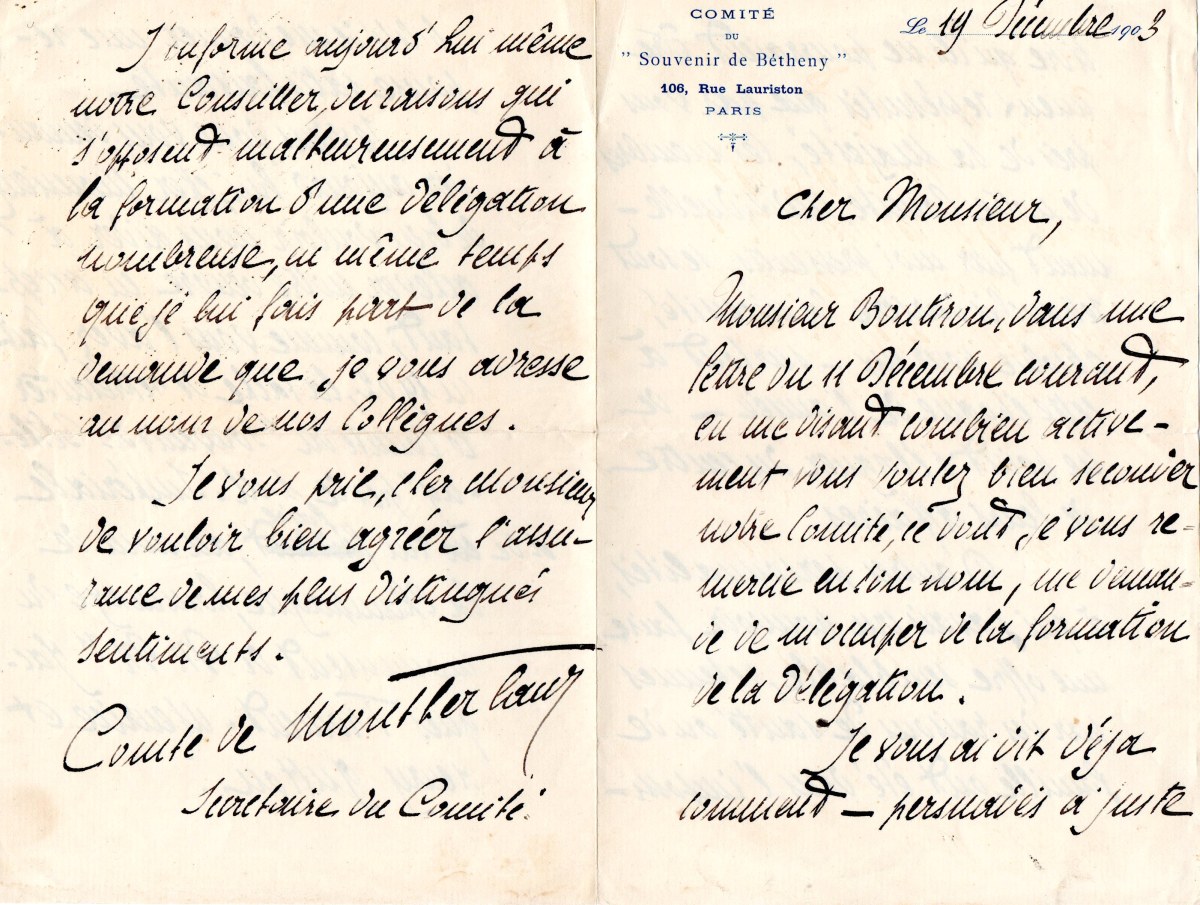 COMITÉ
DU
" Souvenir de Bétheny "
106, Rue Lauriston
PARIS
Le 19 Décembre 1903
Cher Monsieur,
Monsieur Boutiron, dans une
lettre du 11 Décembre courant,
en me disant combien active-
ment vous voulez bien seconder
notre Comité, ce dont je vous re-
mercie en son nom, me deman-
de de m'occuper de la formation
de la Délégation.
Je vous ai dit déja
comment — persuadés à juste
J'informe aujourd'hui même
notre Conseiller, des raisons qui
s'opposent malheureusement à
la formation d'une Délégation
nombreuse, en même temps
que je lui fais part de la
demande que je vous adresse
au nom de nos Collègues.
Je vous prie, cher Monsieur
de vouloir bien agréer l'assu-
rance de mes plus distingués
sentiments.
Comte de Montherlant
Secrétaire du Comité